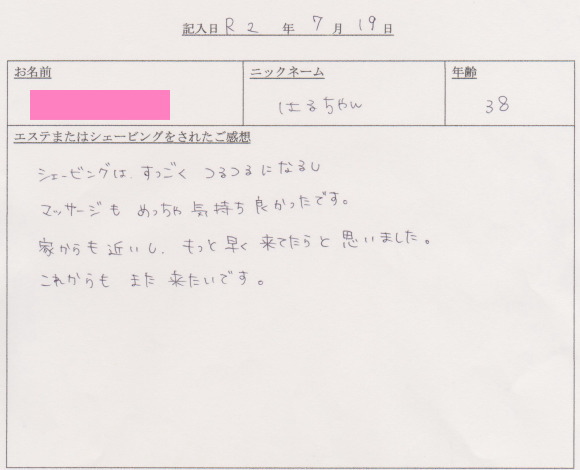 記入日 R2 年 7 月 19 日
お名前 ニックネーム 年齢
はるちゃん 38
エステまたはシェービングをされたご感想
シェービングは、すっごく つるつるになるし
マッサージも めっちゃ 気持ち良かったです。
家からも近いし、もっと早く来てたらと思いました。
これからも また 来たいです。